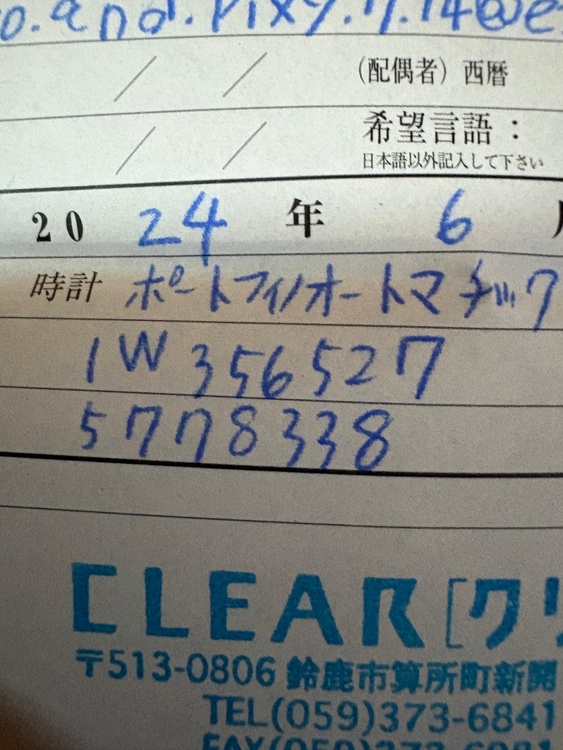 o.and.pixy.7.14@e
(配偶者) 西暦
希望言語：
日本語以外記入して下さい
20 24 年 6
時計 ポートフィノオートマチック
IW356527
5778338
CLEAR [クリ
〒513-0806 鈴鹿市算所町新開
TEL(059)373-6841